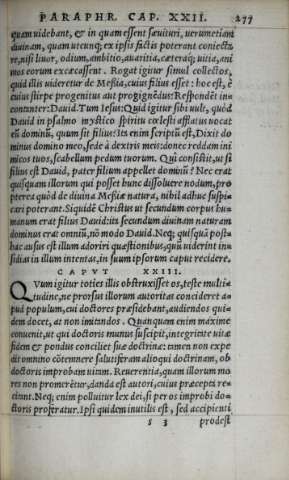 PARAPHR. CAP. XXII. 277
quam videbant, & in quam essent sæuituri, verumetiam
diuinam, quam utcunq; ex ipsis factis poterant coniectu
re, nisi liuor, odium, ambitio, auaritia, cæteraq́; uitia, ani
mos eorum excæcassent. Rogat igitur simul collectos,
quid illis videretur de Messia, cuius filius esset: hoc est, è
cuius stirpe progenitus aut progignēdus? Respondēt in-
cunctanter: Dauid. Tum Iesus: Quid igitur sibi uult, quòd
Dauid in psalmo mystico spiritu cœlesti afflatus uocat
eū dominū, quum sit filius? Ita enim scriptū est, Dixit do
minus domino meo, sede à dextris meis: donec reddam ini
micos tuos, scabellum pedum tuorum. Quî consistit, ut si
filius est Dauid, pater filium appellet dominū? Nec erat
quisquam illorum qui posset hunc dissoluere nodum, pro
pterea quòd de diuina Messiæ natura, nihil adhuc suspi-
cari poterant. Siquidē Christus ut secundum corpus hu-
manum erat filius Dauid: ita secundum diuinam naturam
dominus erat omniū, nō modo Dauid. Neq; quisquā post-
hac ausus est illum adoriri quæstionibus, quū viderint in-
sidias in illum intentas, in suum ipsorum caput recidere.
CAPVT XXIII.
QVum igitor toties illis obstruxisset os, teste multi-
tudine, ne prorsus illorum autoritas concideret a-
pud populum, cui doctores præsidebant, audiendos qui-
dem docet, at non imitandos. Quanquam enim maxime
conuenit, ut qui doctoris munus suscipit, integritate uitæ
fidem & pondus conciliet suæ doctrinæ: tamen non expe
dit omnino cōtemnere salutiferam alioqui doctrinam, ob
doctoris improbam uitam. Reuerentia, quam illorum mo
res non promerētur, danda est autori, cuius præcepta re-
citant. Neq; enim polluitur lex dei, si per os improbi do-
ctoris proferatur. Ipsi quidem inutilis est, sed accipienti
s 3 prodest